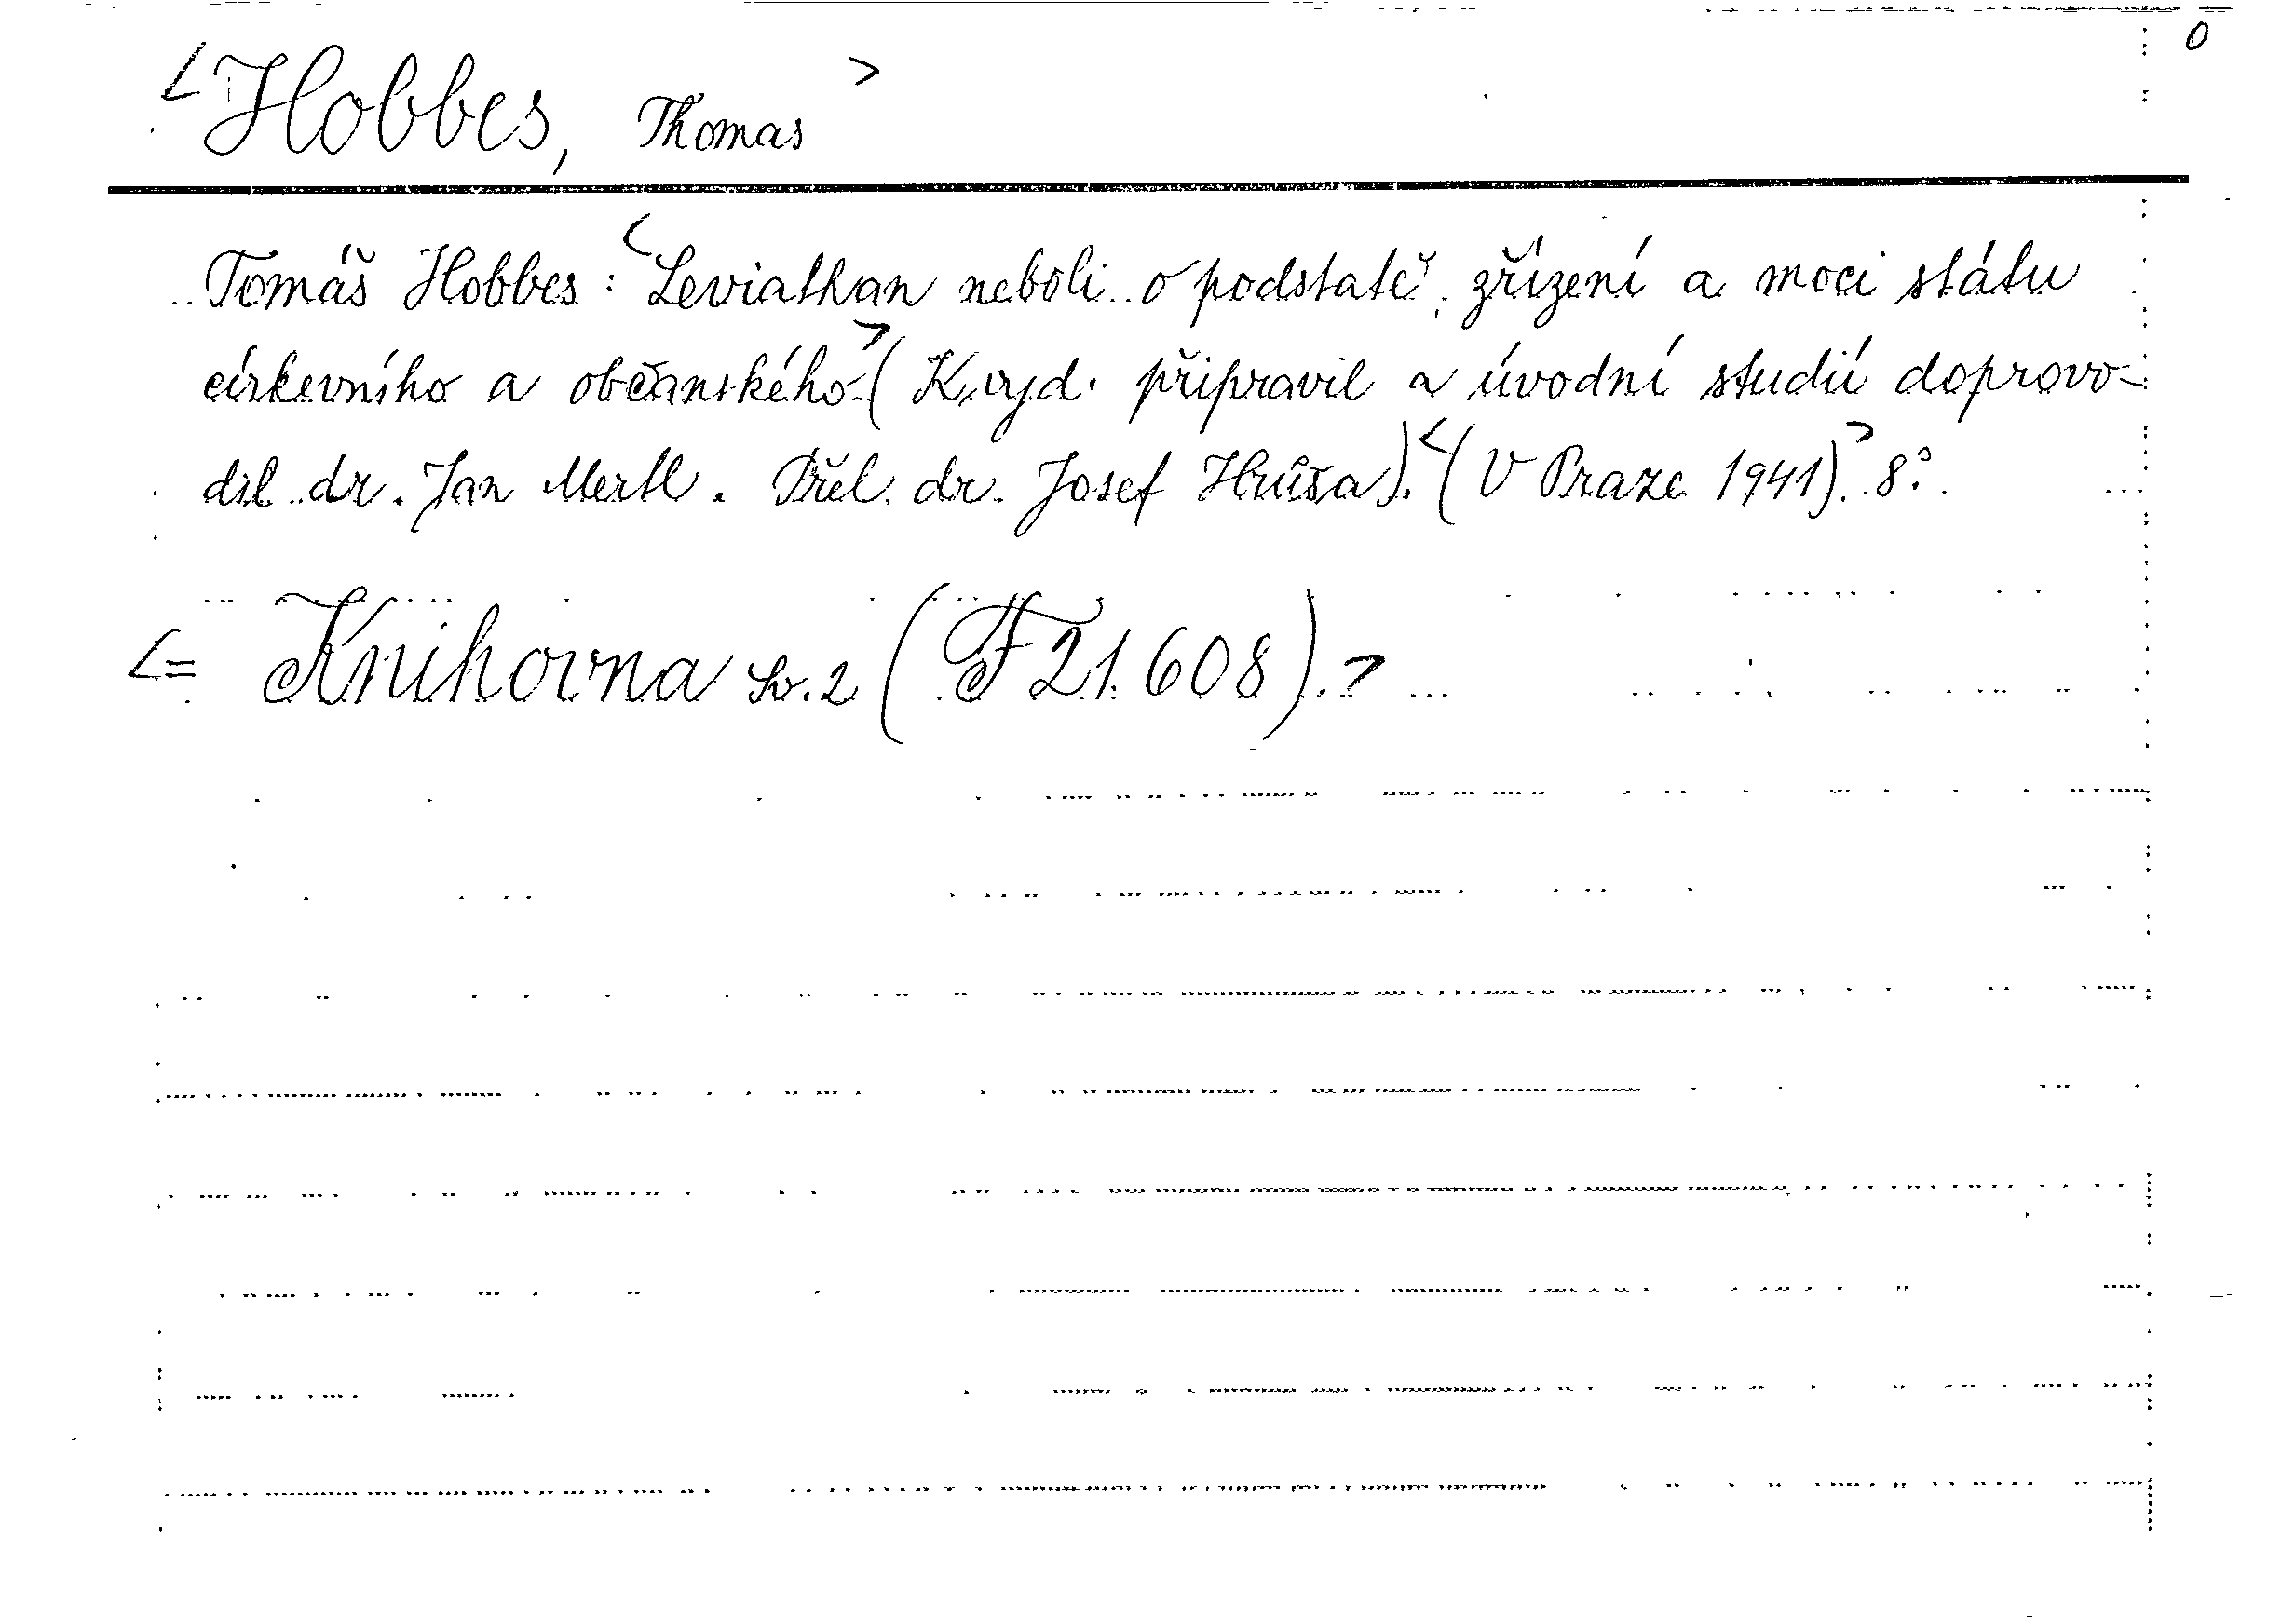 0
<Hobbes, Thomas>
Tomáš Hobbes: <Leviathan neboli o podstatě, zřízení a moci státu
církevního a občanského> (K vyd. připravil a úvodní studií doprovo-
dil dr. Jan Mertl. Přel. dr. Josef Hrůša). <(V Praze 1941).> 8°.
<= Knihovna sv. 2 (F 21.608).>